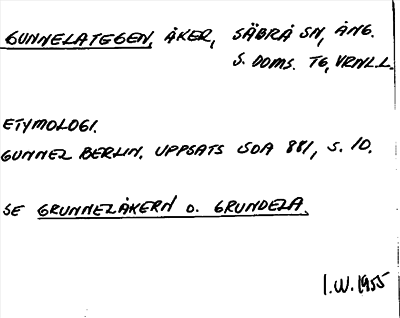 GUNNELATEGEN, ÅKER, SÄBRÅ SN, ÅNG.
S. DOMS. TG, VRNL L.
ETYMOLOGI.
GUNNEL BERLIN. UPPSATS SOA 881, S. 10.
SE GRUNNELÅKERN O. GRUNDELA.
I.W. 1955